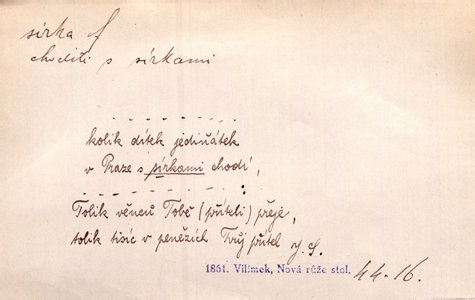 sirka f
choditi s sirkami
- - - - - - - - - -
kolik dítek jedináček
v Praze s sirkami chodí,
- - - - - - - - - - :
Tolik věnců Tobě (příteli) přeje,
tolik tisíc v penězích Tvůj přítel J. S.
1861. Vilímek, Nová růže stol.
44-16.